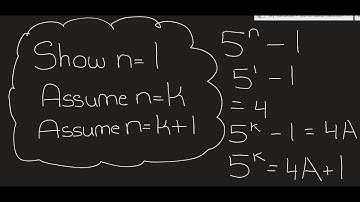 Show n=1
Assume n=k
Assume n=k+1
5ⁿ - 1
5¹ - 1
= 4
5ᵏ - 1 = 4A
5ᵏ = 4A+1